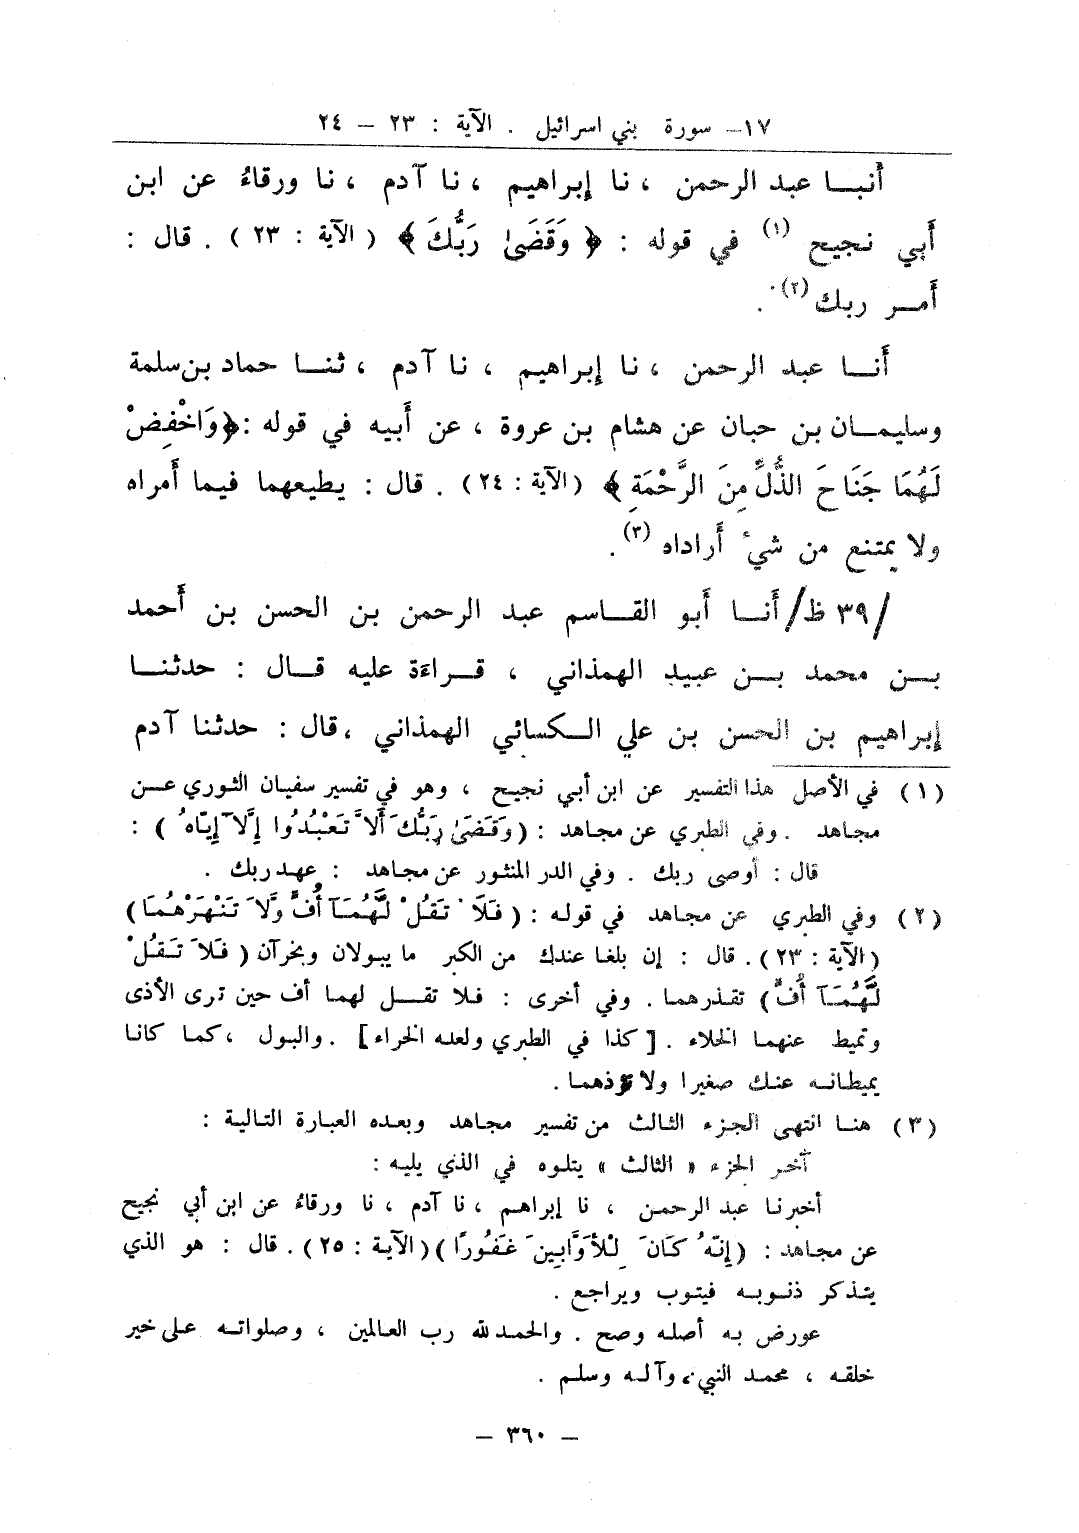 ١٧- سورة بني اسرائيل . الآية : ٢٣ - ٢٤
أنبا عبد الرحمن ، نا إبراهيم ، نا آدم ، نا ورقاءُ عن ابن
أبي نجيح (١) في قوله : ﴿ وَقَضَىٰ رَبُّكَ ﴾ ( الآية : ٢٣ ) . قال :
أمر ربك (٢) .
أنا عبد الرحمن ، نا إبراهيم ، نا آدم ، ثنا حماد بن سلمة
وسليمان بن حبان عن هشام بن عروة ، عن أبيه في قوله :﴿وَاخْفِضْ
لَهُمَا جَنَاحَ الذُّلِّ مِنَ الرَّحْمَةِ ﴾ ( الآية : ٢٤ ) . قال : يطيعهما فيما أمراه
ولا يمتنع من شيء أراداه (٣) .
/٣٩ ظ/ أنا أبو القاسم عبد الرحمن بن الحسن بن أحمد
بن محمد بن عبيد الهمذاني ، قراءة عليه قال : حدثنا
إبراهيم بن الحسن بن علي الكسائي الهمذاني ، قال : حدثنا آدم
( ١ ) في الأصل هذا التفسير عن ابن أبي نجيح ، وهو في تفسير سفيان الثوري عن
مجاهد . وفي الطبري عن مجاهد : ( وَقَضَىٰ رَبُّكَ أَلَّا تَعْبُدُوا إِلَّا إِيَّاهُ ) :
قال : أوصى ربك . وفي الدر المنثور عن مجاهد : عهد ربك .
( ٢ ) وفي الطبري عن مجاهد في قوله : ( فَلَا تَقُلْ لَّهُمَآ أُفٍّ وَّلَا تَنْهَرْهُمَا )
( الآية : ٢٣ ) . قال : إن بلغا عندك من الكبر ما يبولان ويخرآن ( فَلَا تَقُلْ
لَّهُمَآ أُفٍّ ) تقذرهما . وفي أخرى : فلا تقل لهما أف حين ترى الأذى
وتميط عنهما الخلاء . [ كذا في الطبري ولعله الخراء ] . والبول ، كما كانا
يميطانه عنك صغيرا ولا تؤذهما .
( ٣ ) هنا انتهى الجزء الثالث من تفسير مجاهد وبعده العبارة التالية :
آخر الجزء « الثالث » يتلوه في الذي يليه :
أخبرنا عبد الرحمن ، نا إبراهيم ، نا آدم ، نا ورقاءُ عن ابن أبي نجيح
عن مجاهد : ( إِنَّهُ كَانَ لِلْأَوَّابِينَ غَفُورًا ) ( الآية : ٢٥ ) . قال : هو الذي
يتذكر ذنوبه فيتوب ويراجع .
عورض به أصله وصح . والحمد لله رب العالمين ، وصلواته على خير
خلقه ، محمد النبي ، وآله وسلم .
- ٣٦٠ -